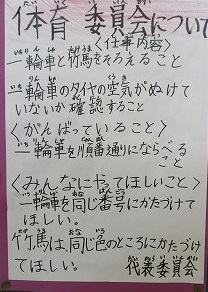 体育委員会について
〈仕事内容〉
一輪車と竹馬をそろえること
一輪車のタイヤの空気がぬけて
いないか確認すること
〈がんばっていること〉
一輪車を順番通りにならべる
こと
〈みんなにやってほしいこと〉
一輪車を同じ番号にかたづけて
ほしい。
竹馬は、同じ色のところにかたづけ
てほしい。
代表委員会